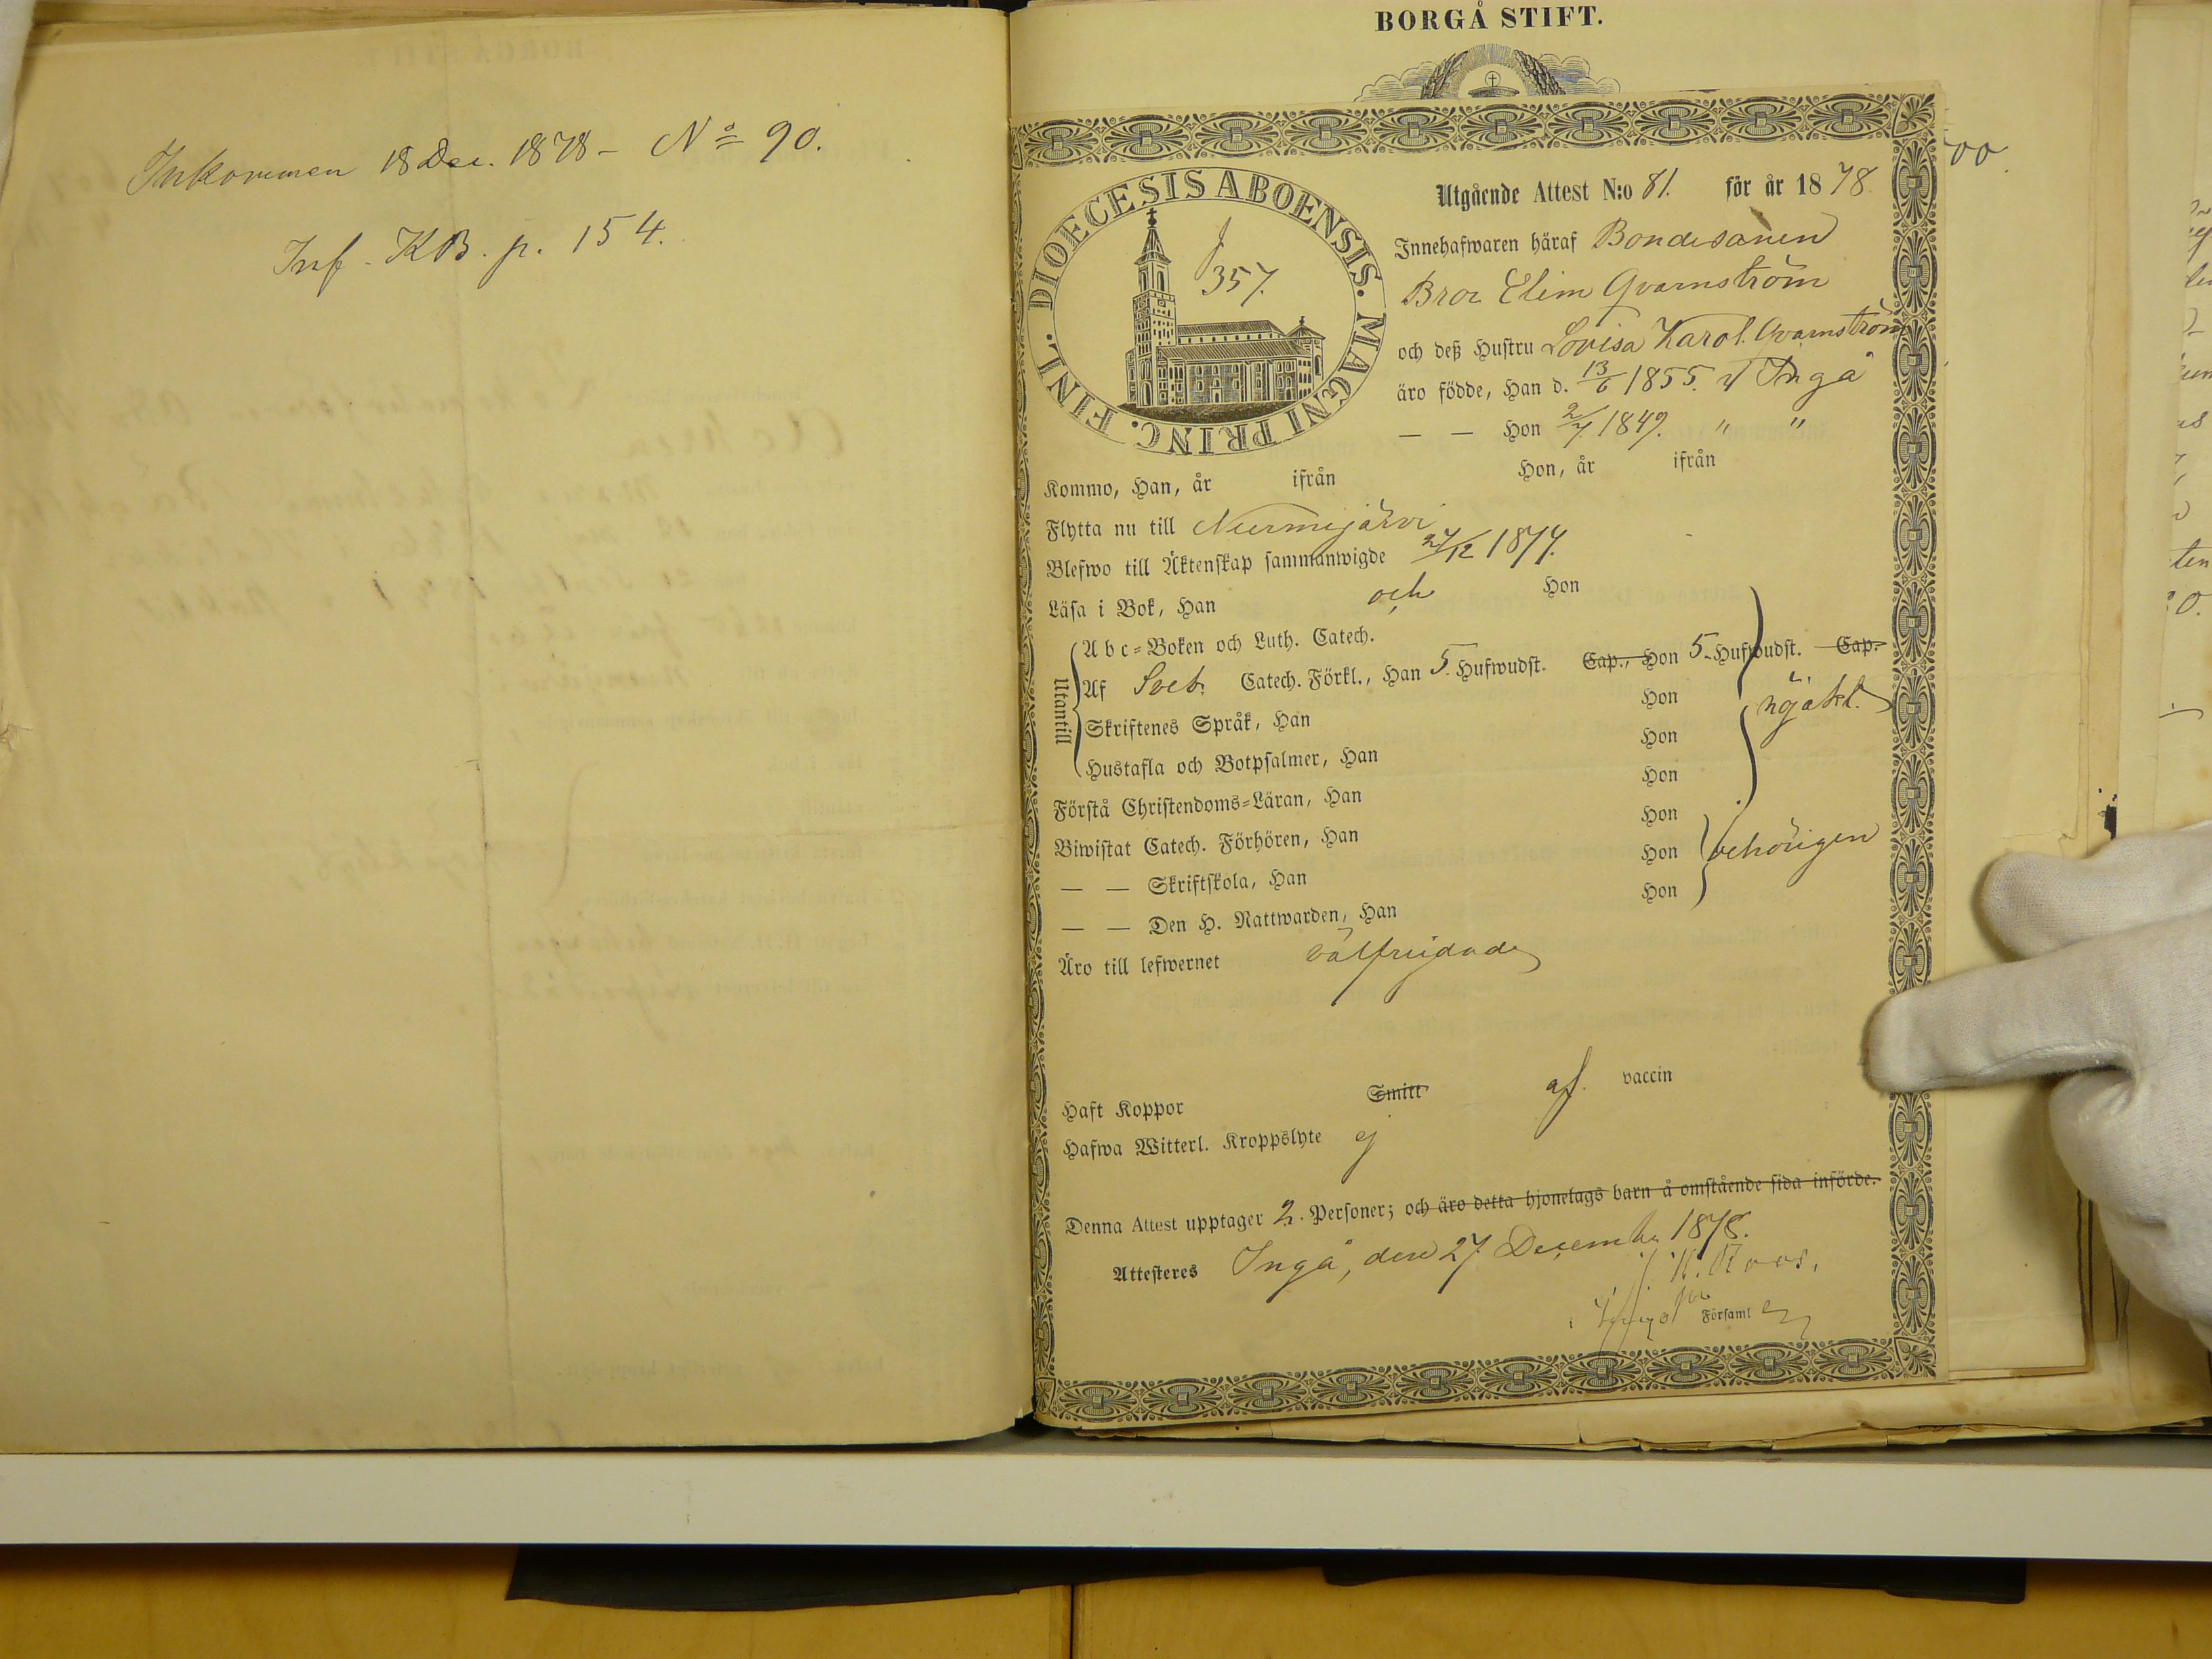 Inkommen 18 Dec. 1878 - No 90.
Inf. KB. p. 154.
BORGÅ STIFT.
DIOECESIS ABOENSIS. MAGNI PRINC. FINL.
f 357.
Utgående Attest N:o 81. för år 1878
Innehafwaren häraf Bondesonen
Bror Elim Qvarnström
och deß Hustru Lovisa Karol. Qvarnström
äro födde, Han d. 13/6 1855. i Ingå
— — Hon 2/7 1849. " "
Kommo, Han, år ifrån Hon, år ifrån
Flytta nu till Nurmijärvi
Blefwo till Äktenskap sammanwigde 27/12 1877.
Läsa i Bok, Han och Hon
Utantill
Abc-Boken och Luth. Catech.
Af Sveb. Catech. Förkl., Han 5. Hufwudst. Cap., Hon 5. Hufwudst. Cap.
Skriftenes Språk, Han Hon
Hustafla och Botpsalmer, Han Hon
Förstå Christendoms-Läran, Han Hon
nöjakt.
Biwistat Catech. Förhören, Han Hon
— — Skriftskola, Han Hon
— — Den H. Nattwarden, Han Hon
behörigen
Äro till lefwernet välfrejdade
Haft Koppor Smitt af vaccin
Hafwa Witterl. Kroppslyte ej
Denna Attest upptager 2. Personer; och äro detta hjonelags barn å omstående sida införde.
Attesteres Ingå, den 27 December 1878.
Roos.
Församl